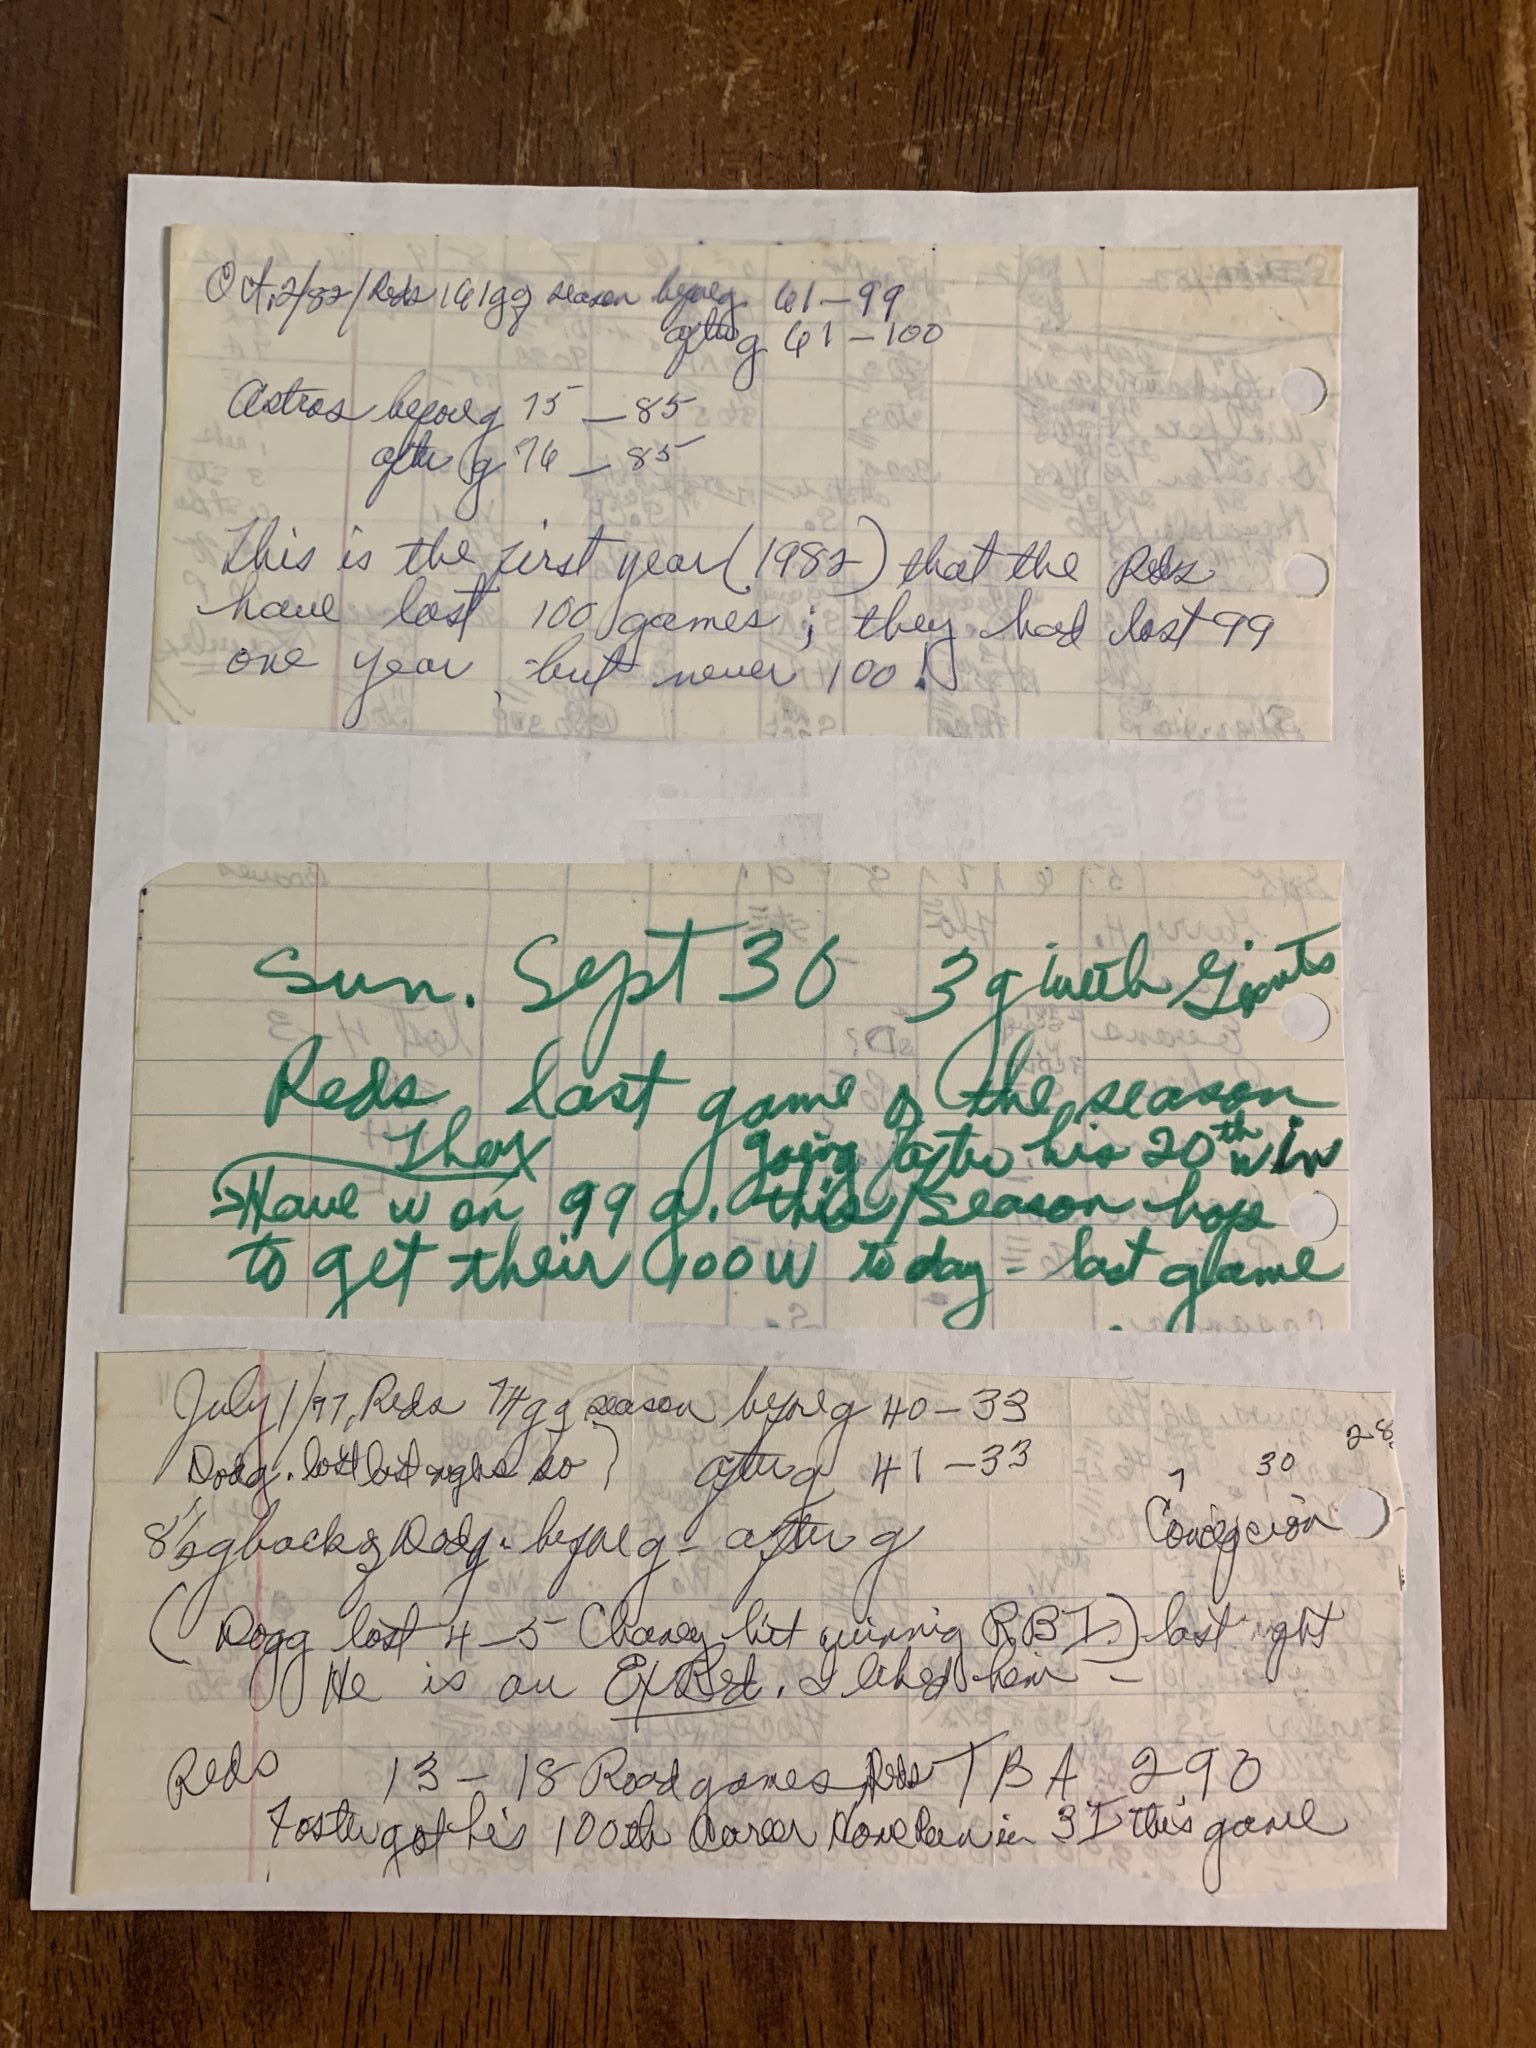 Oct, 2/82/Reds 161 g g season before g 61-99
after g 61-100
Astros before g 75-85
after g 76-85
This is the first year (1982) that the Reds
have lost 100 games; they had lost 99
one year, but never 100!
Sun. Sept 30 3 g with Giants
Reds last game of the season
going after his 20th win
Have won 99 g. this season hope
to get their 100 W today - last game
July 1/77, Reds 74 g g season before g 40-33
Dodg. lost last night so) after g 41-33
28
7 30
8 1/2 g back of Dodg. before g - after g
Concepcion
(Dogg lost 4-5 Chaney hit winning RBI.) last night
He is an Ex Red. I liked him -
Reds 13-18 Road games Reds TBA 290
Foster got his 100th Career Home Run in 3 I this game